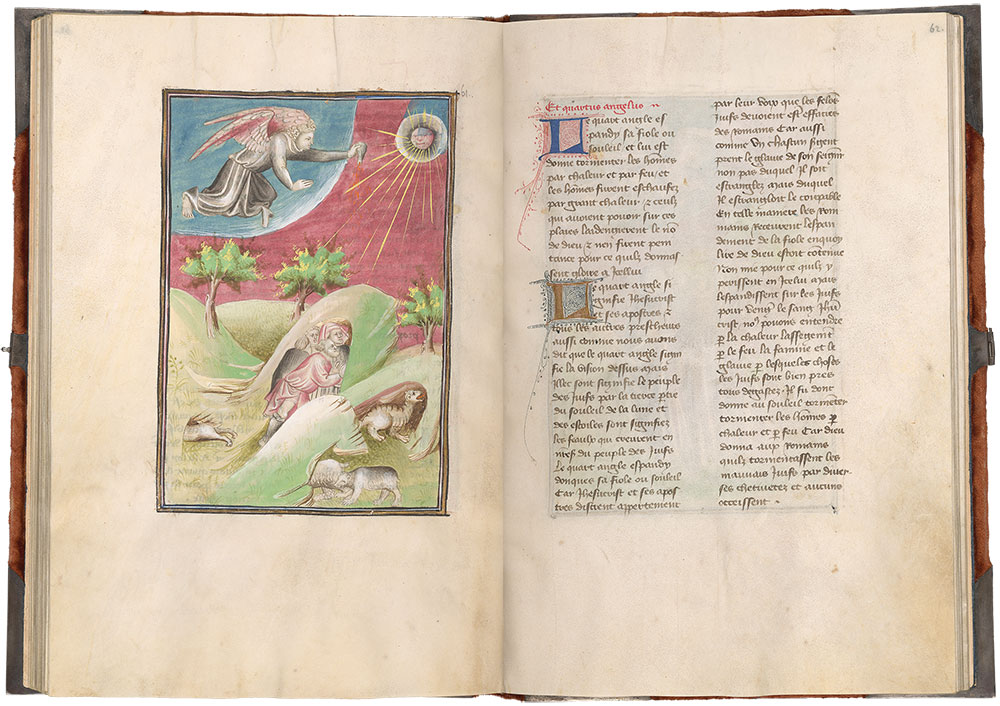 61
62
Et quartus angelus
Le quart angle es
pandy sa fiole ou
souleil et lui est
donne tormenter les hōmes
par chaleur et par feu / et
les hōmes furent eschaufez
par grant chaleur / z ceulx
qui avoient pouoir sur ces
plaies laidengnerent le nō
de dieu z nen firent peni
tance pour ce quilz donnas
sent gloire a icellui
Le quart angle si
gnifie Jhesucrist
et ses apostres z
tous les autres prescheurs
aussi comme nous avons
dit que le quart angle signi
fie la vision dessus mais
illec sont signifie le peuple
des juifs par la tierce ptie
du souleil de la lune et
des estoiles sont signifiez
les feaulx qui creurent en
du peuple des juifs
Le quart angle espandy
donques sa fiole ou souleil
Car Jhesucrist et ses apos
tres disrent appertement
par leur voix que les felos
juifs devoient est effaciés
des Romams Car aussi
comme un chascun sergent
prent le glaive de son seigñr
non pas duquel il soit
estranglez mais duquel
il estrangloit le coupable
En telle maniere les Rom
mains receurent lespan
dement de la fiole en quoy
lire de dieu estoit contenue
Non mie pour ce quilz y
perissent en icelui mais
lespandissent sur les juifs
pour vengr le sang Jhũ
crist no9 povons entendre
p la chaleur lassegent
p le feu la famine et le
glaive p lesquelles choses
les juifs sont bien pres
tous degastez. Il fu dont
donne au souleil tormēter
tormenter les hōmes p
chaleur et p feu Car dieu
donna aux Romains
quilz tormentassent les
mauvais juifs par diver
ses chetivetez et aucuns
occeissent.